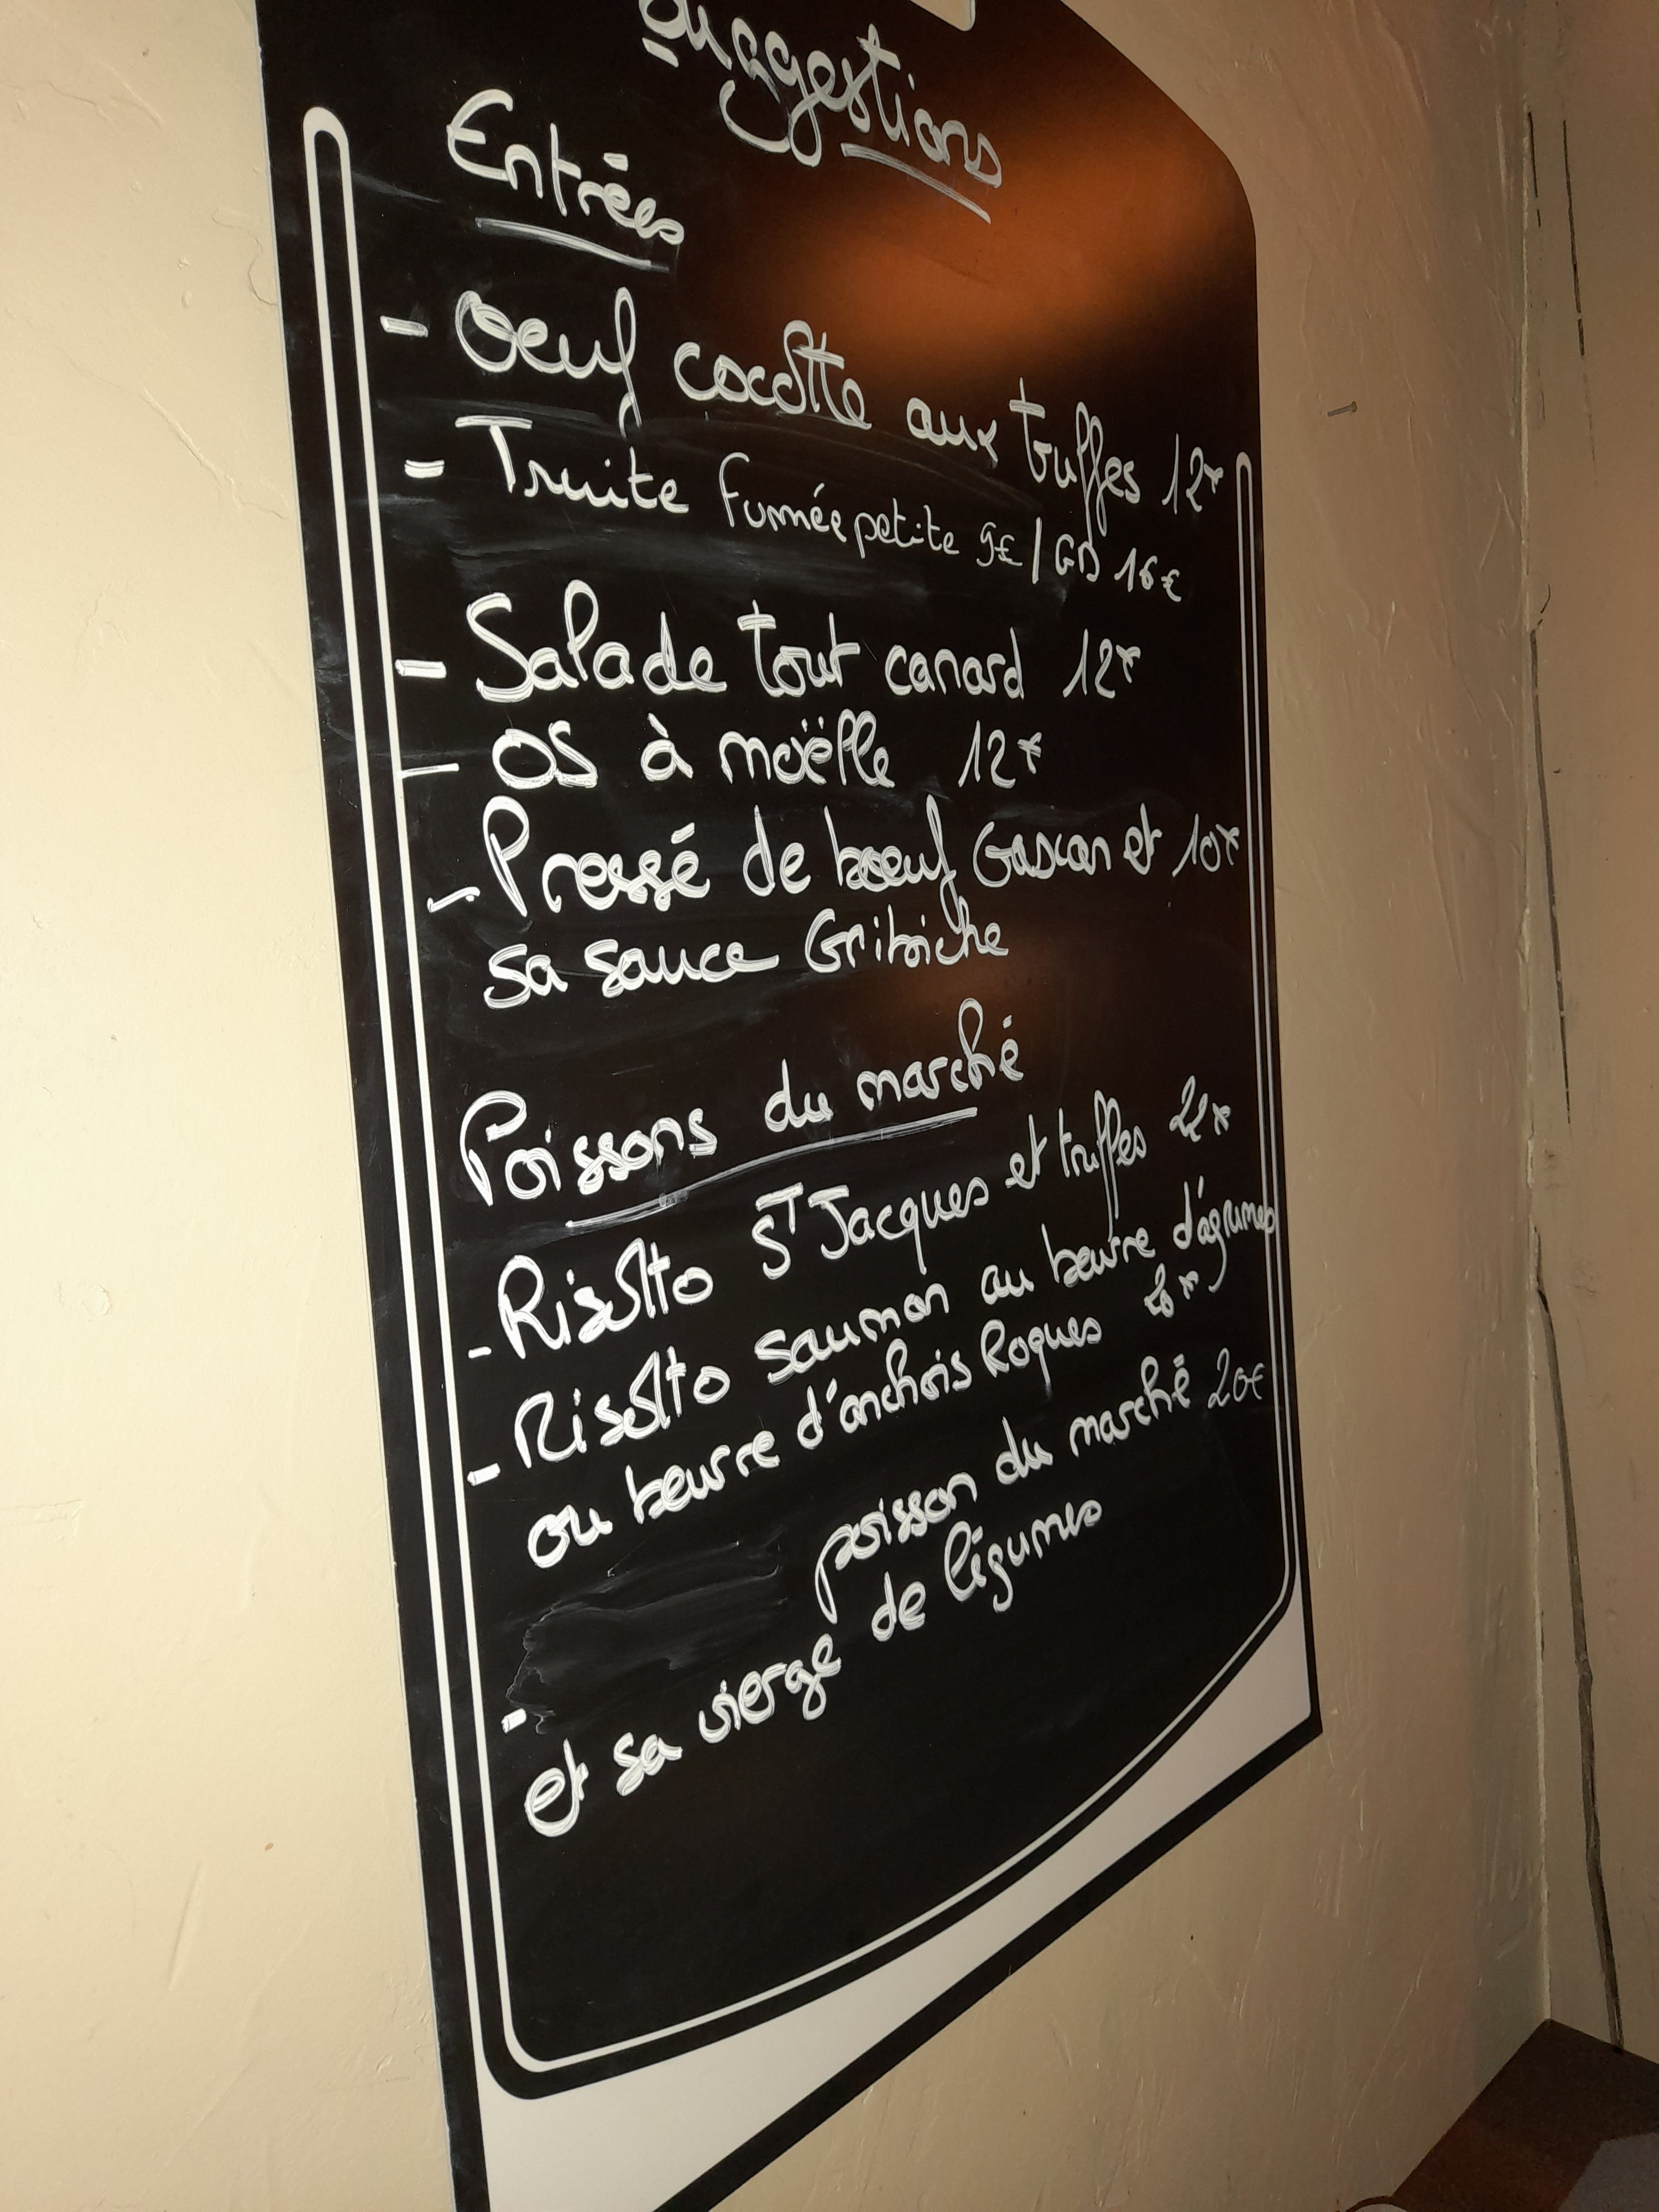 Suggestions
Entrées
- Oeuf cocotte aux truffes 12€
- Truite Fumée petite 9€ / GD 16€
- Salade tout canard 12€
- OS à moëlle 12€
- Pressé de boeuf Gascon et 10€
sa sauce Gribiche
Poissons du marché
- Risotto ST Jacques et truffes 22€
- Risotto saumon au beurre d'agrumes
ou beurre d'anchois Roques
- poisson du marché 20€
et sa vierge de légumes